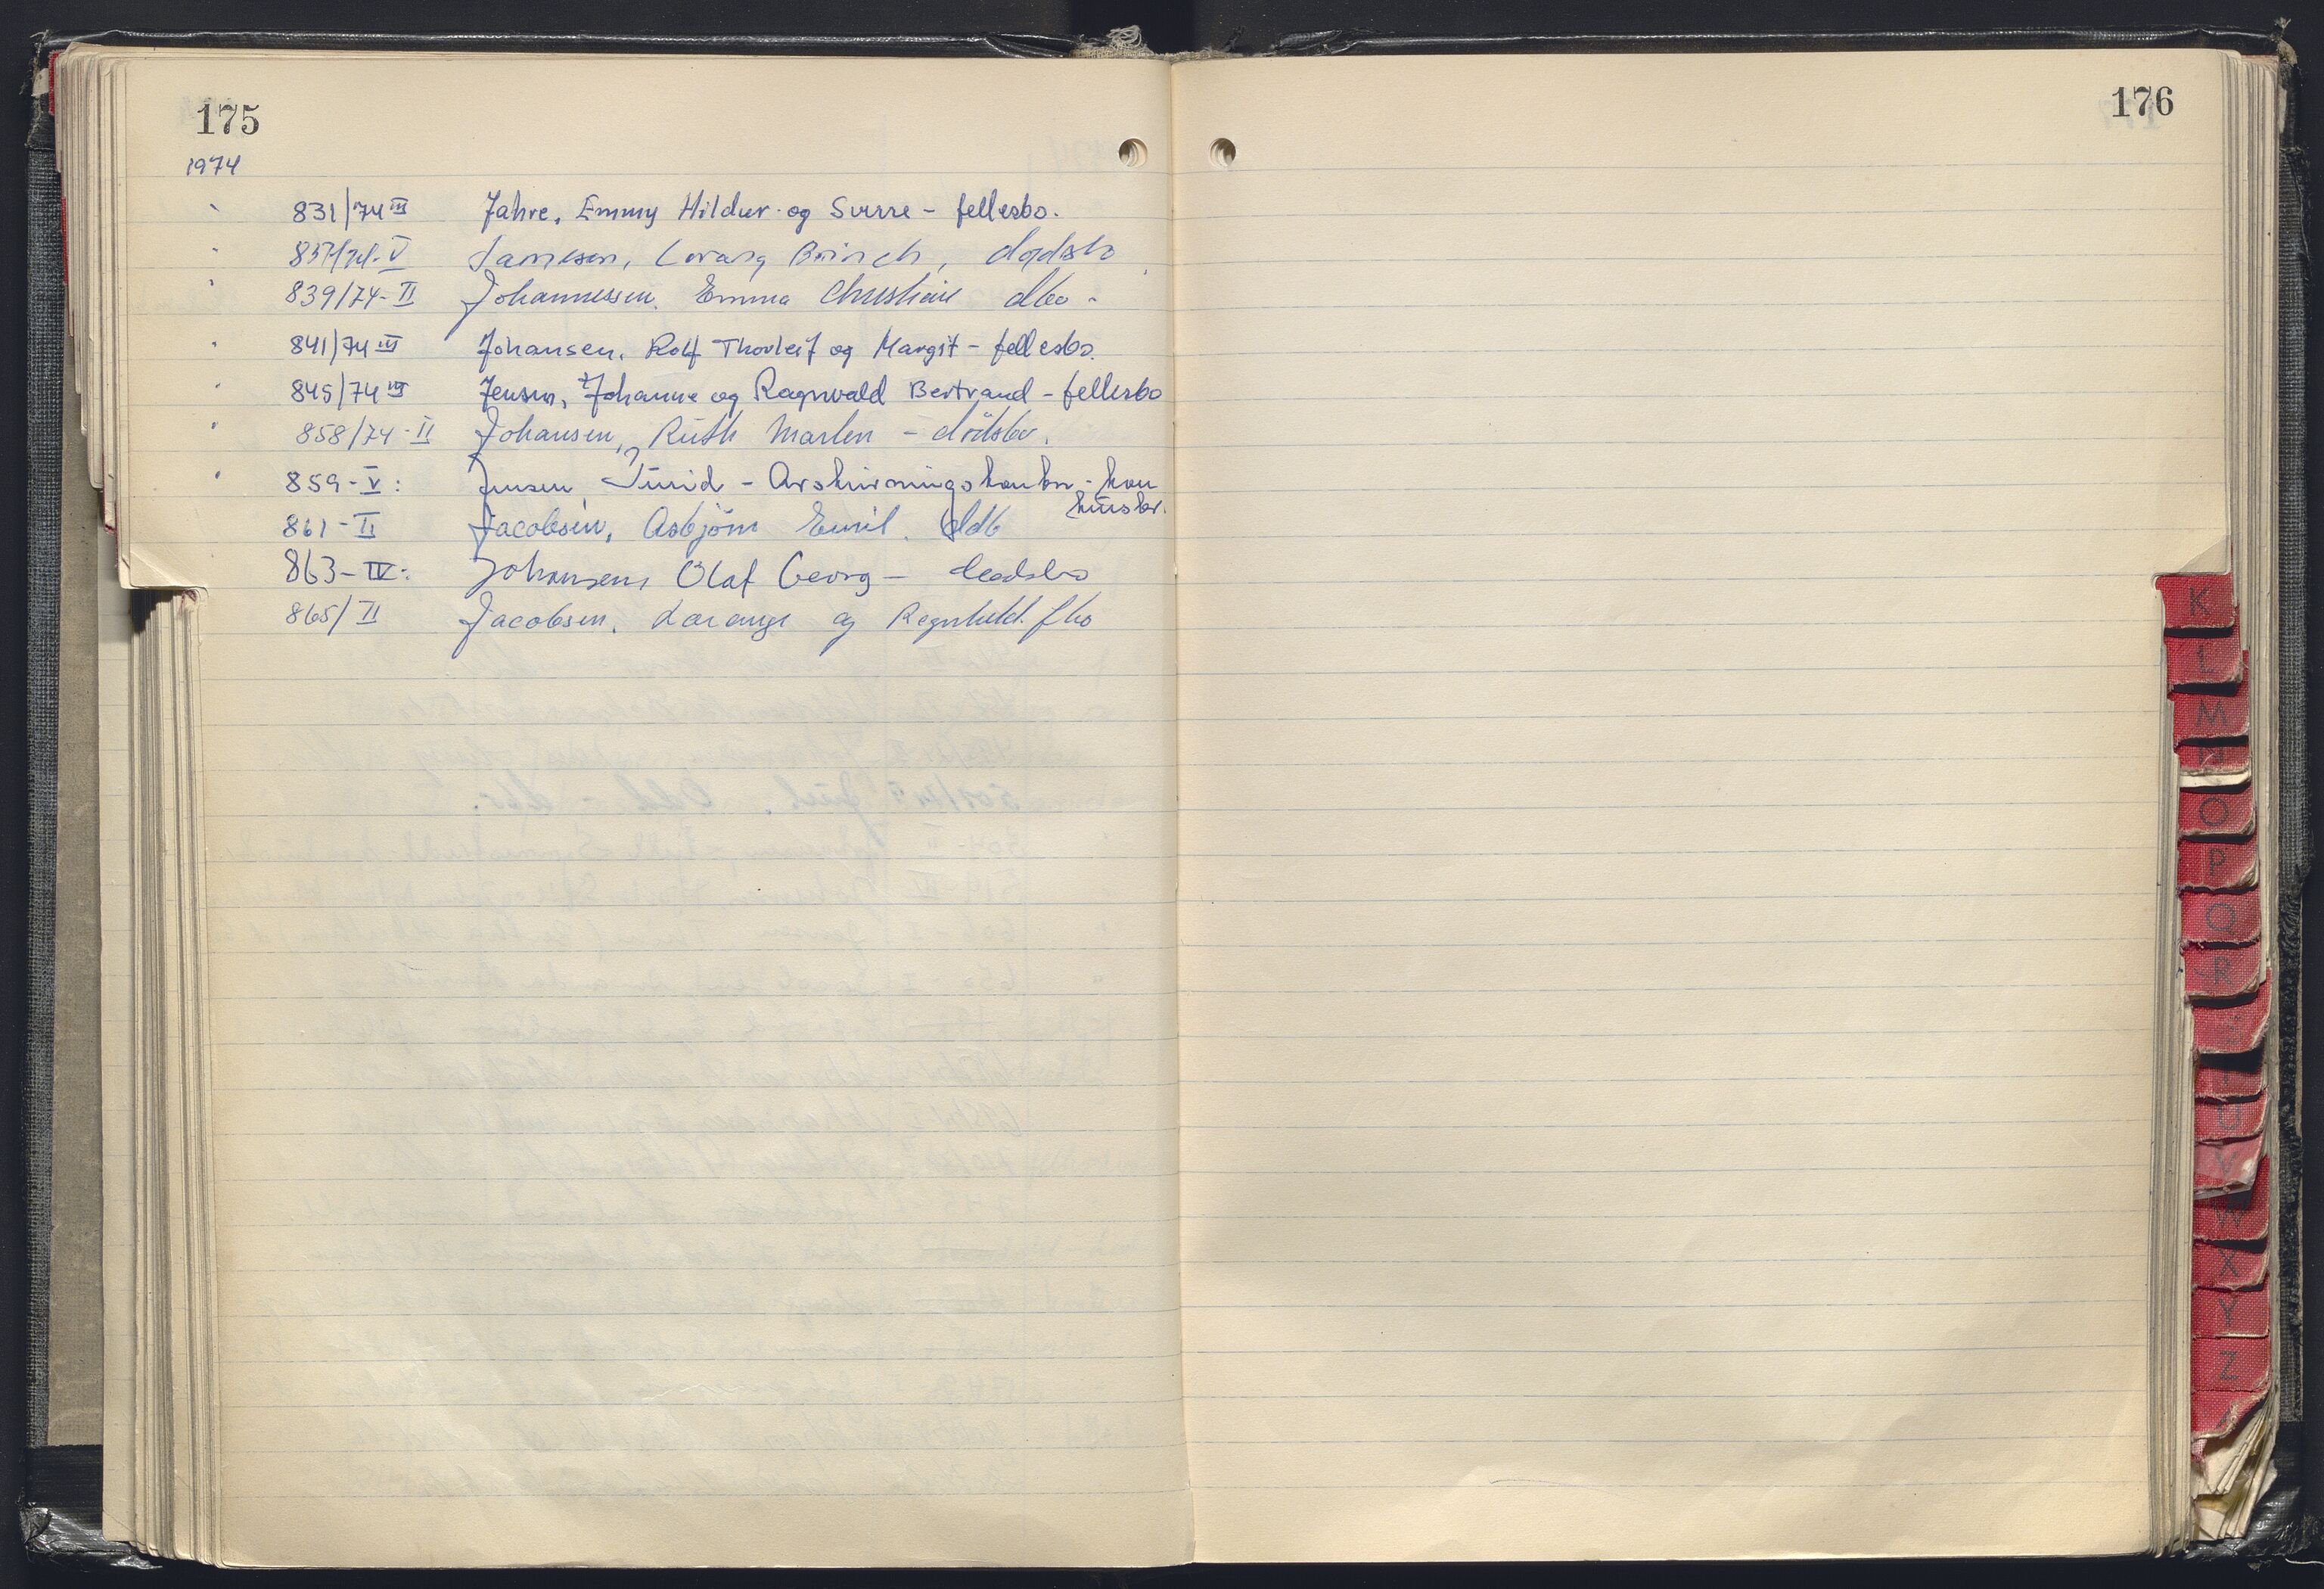 175
176
1974
831/74 III Jahre, Emmy Hildur og Sverre - fellesbo.
837/74-V Jamesen, Lorang Brinch, dødsbo
839/74-II Johannessen, Emma Christine dbo -
841/74 III Johansen, Rolf Thorleif og Margit - fellesbo.
845/74 III Jensen, Johanne og Ragnvald Bertrand - fellesbo
858/74-II Johansen, Ruth Marlen - dödsbo.
859-V: Jensen, Turid - - kon
861-II Jacobsen, Asbjörn Emil. ddb
863-IV: Johansen, Olaf Georg - dødsbo
865/II Jacobsen, og Ragnhild. fbo
K
L
M
N
O
P
Q
R
S
T
U
V
W
X
Y
Z